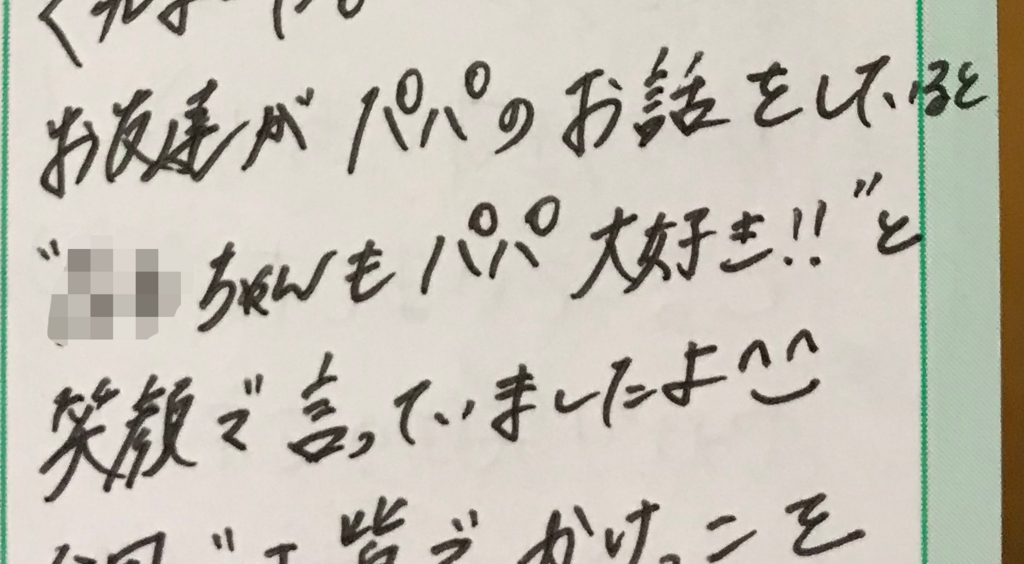 お友達が パパの お話をしていると
"ちゃんも パパ 大好き!!"と
笑顔で 言っていましたよ^^
皆で かけっこを